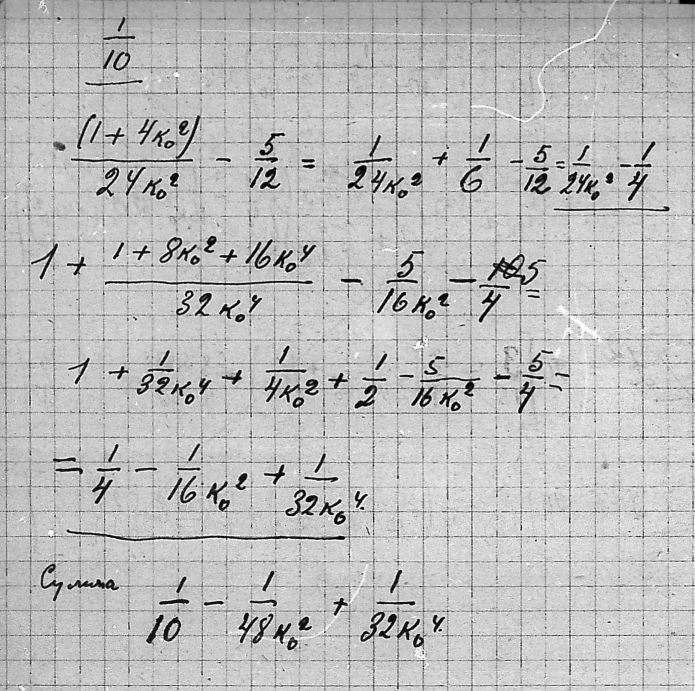 1/10
(1 + 4к₀²)/24к₀² - 5/12 = 1/24к₀² + 1/6 - 5/12 = 1/24к₀² - 1/4
1 + (1 + 8к₀² + 16к₀⁴)/32к₀⁴ - 5/16к₀² - 5/4 =
1 + 1/32к₀⁴ + 1/4к₀² + 1/2 - 5/16к₀² - 5/4 =
= 1/4 - 1/16к₀² + 1/32к₀⁴.
Сумма 1/10 - 1/48к₀² + 1/32к₀⁴.